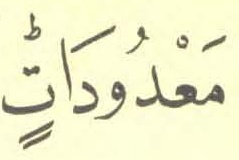 مَعْدُودَاتٍؕ